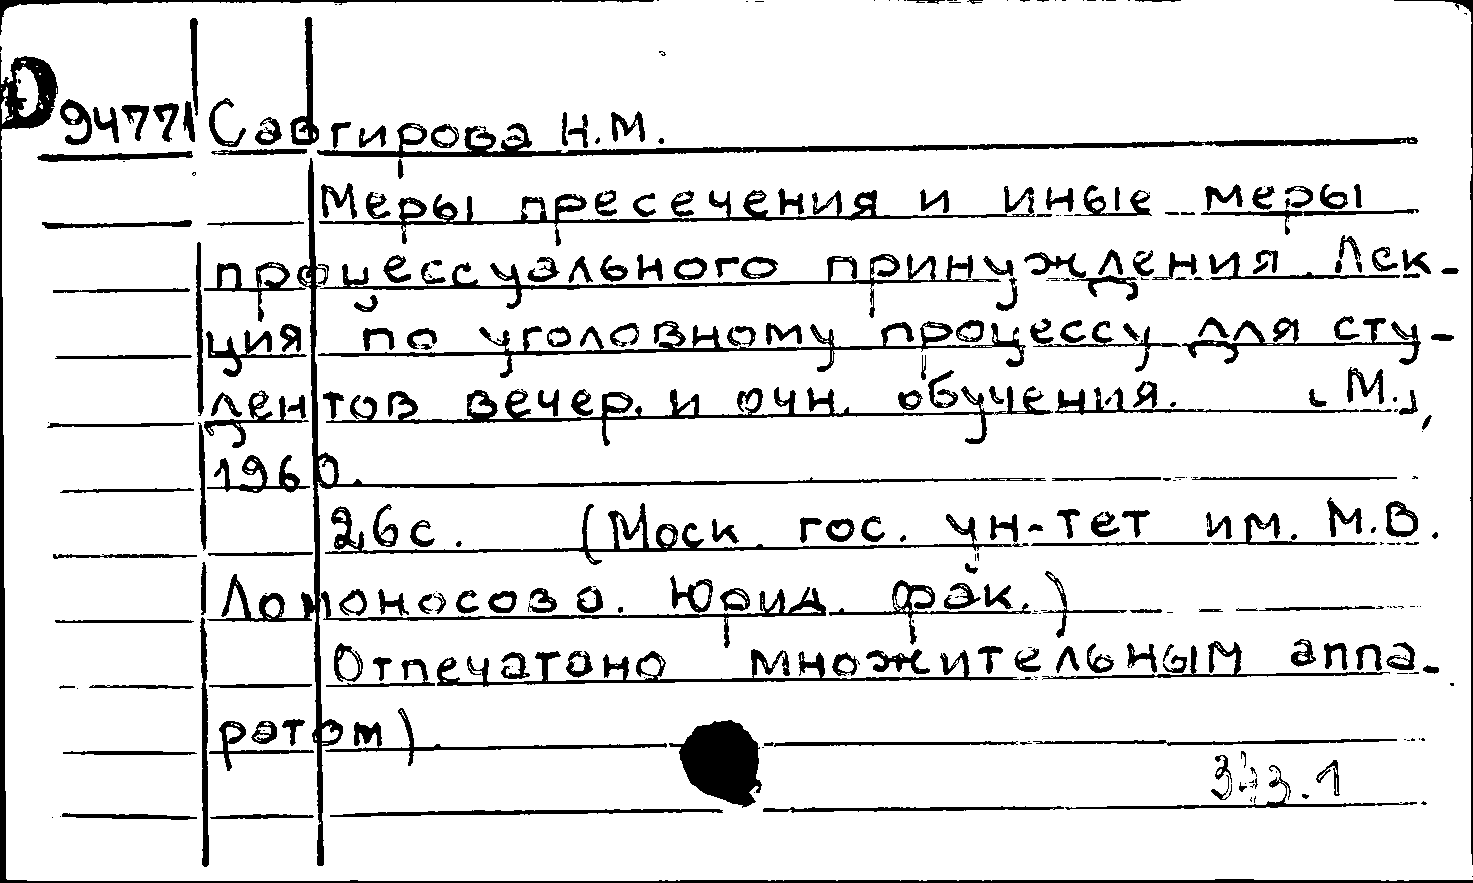 D 94771 Савгирова Н.М.
Меры пресечения и иные меры
процессуального принуждения. Лек-
ция по уголовному процессу для сту-
дентов вечер. и очн. обучения. [М.],
1960.
26 с. (Моск. гос. ун-тет им. М.В.
Ломоносова. Юрид. фак.)
Отпечатано множительным аппа-
ратом).
343.1